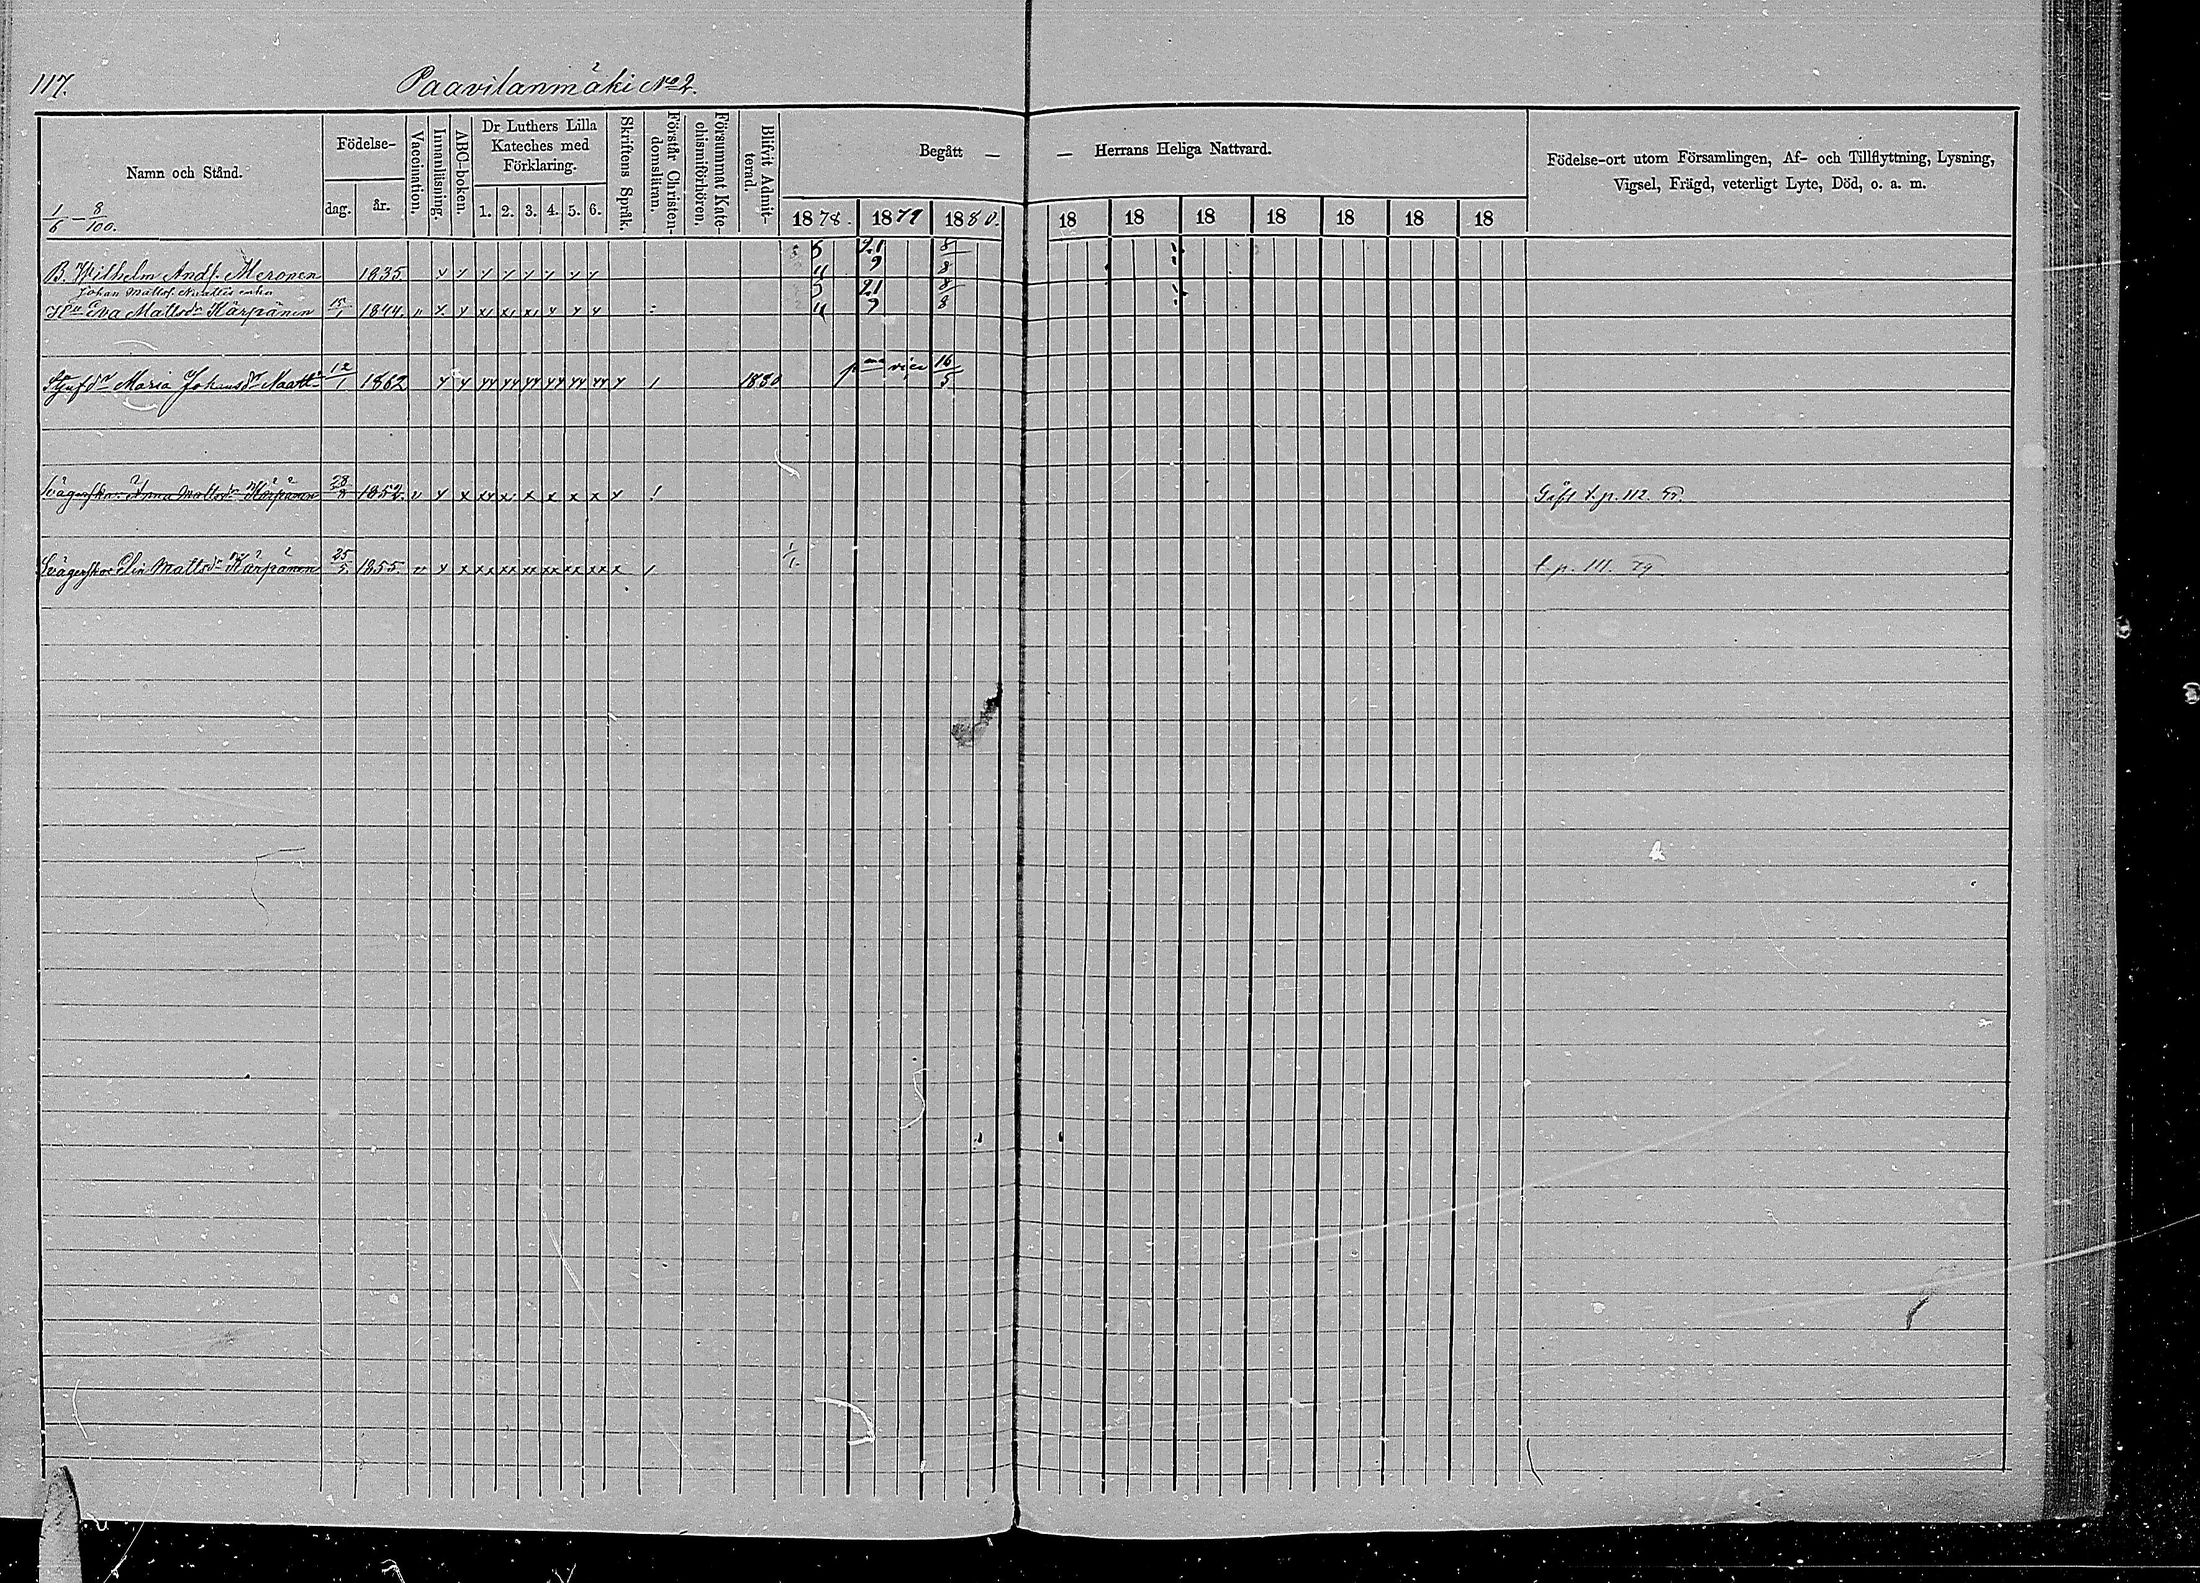 117. Paavilanmäki No 2.
Namn och Stånd.
1/6 - 8/100.
Födelse-
dag. år.
Vaccination.
Innanläsning.
ABC-boken.
Dr Luthers Lilla
Kateches med
Förklaring.
1. 2. 3. 4. 5. 6.
Skriftens Språk.
Förstår Christen-
domsläran.
Försummat Kate-
chismiförhören.
Blifvit Admit-
terad.
Begått — — Herrans Heliga Nattvard.
1878. 1879 1880. 18 18 18 18 18 18 18
Födelse-ort utom Församlingen, Af- och Tillflyttning, Lysning,
Vigsel, Frägd, veterligt Lyte, Död, o. a. m.
B. Wilhelm Andf. Meronen 1835 21/9 8/8
Johan Mattsf. enka
Hu Eva Mattsdr Kärpänen 15/1 1844. 21/9 8/8
Styfdr Maria Johansdr 12/1 1862 1880 vice 16/5
Svägerskan Anna Mattsdr Kärpänen 1852. Gift t. p. 112.
Svägerskan Elin Mattsdr Kärpänen 25/5. 1855. 1/1. t. p. 111.